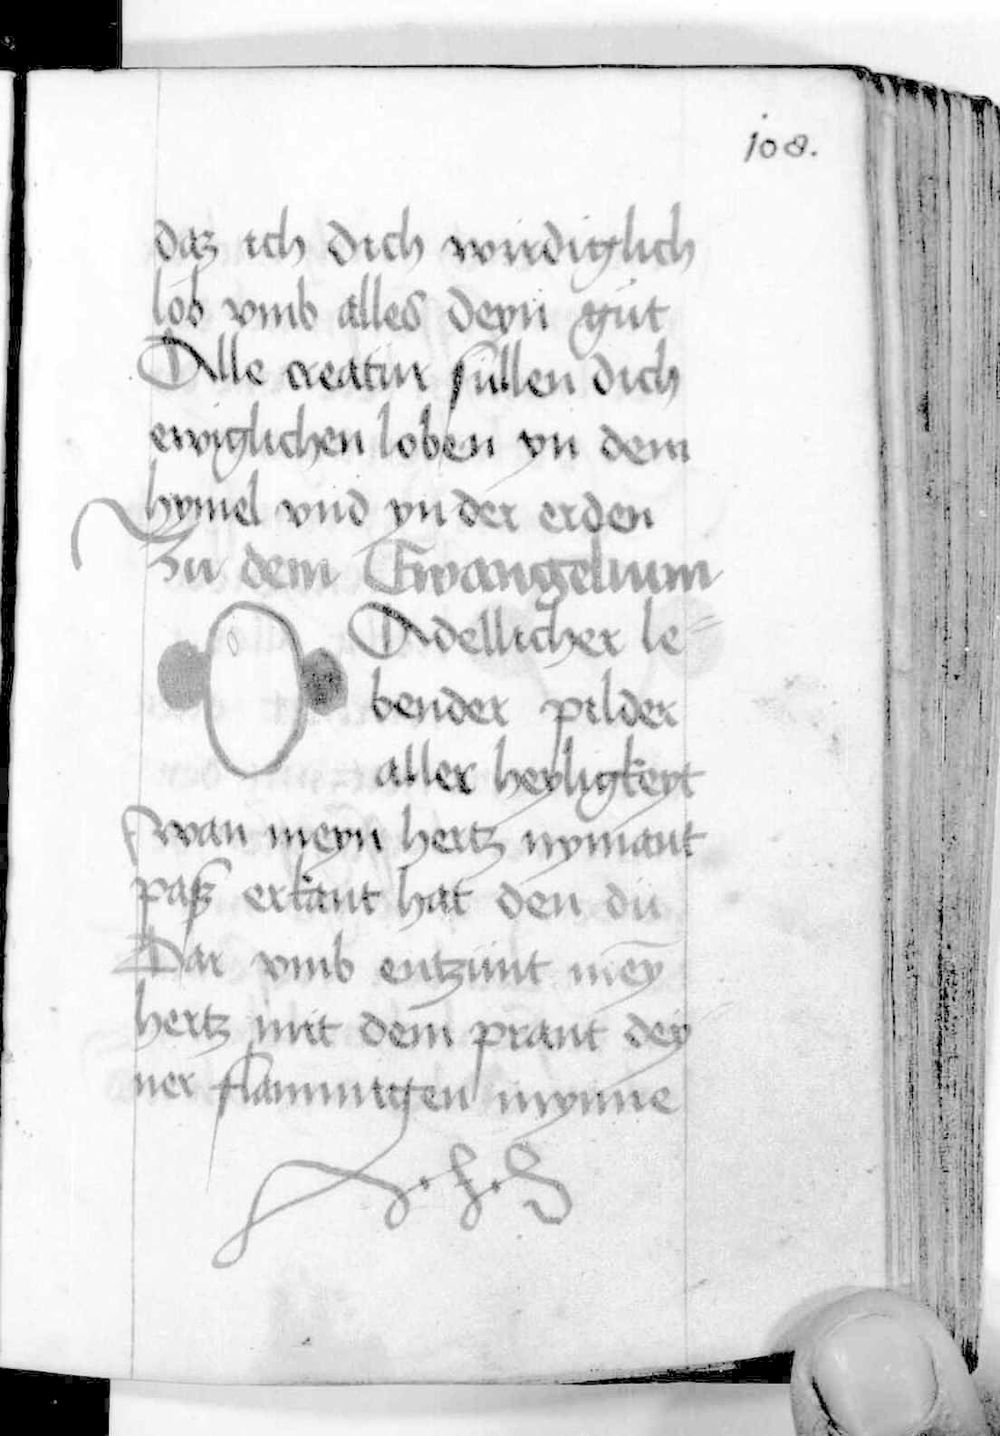 108.
daz ich dich wirdiglich
lob vmb alles deyn gut
Alle creatur sullen dich
ewiglichen loben yn dem
hymel vnd yn der erden
Zu dem Ewangelium
O Adellicher le=
bender pilder
aller heyligkeyt
wan meyn hertz nymant
pasz erkant hat den du
Dar vmb entzunt mey̅
hertz mit dem prant dey
ner flammigen mynne